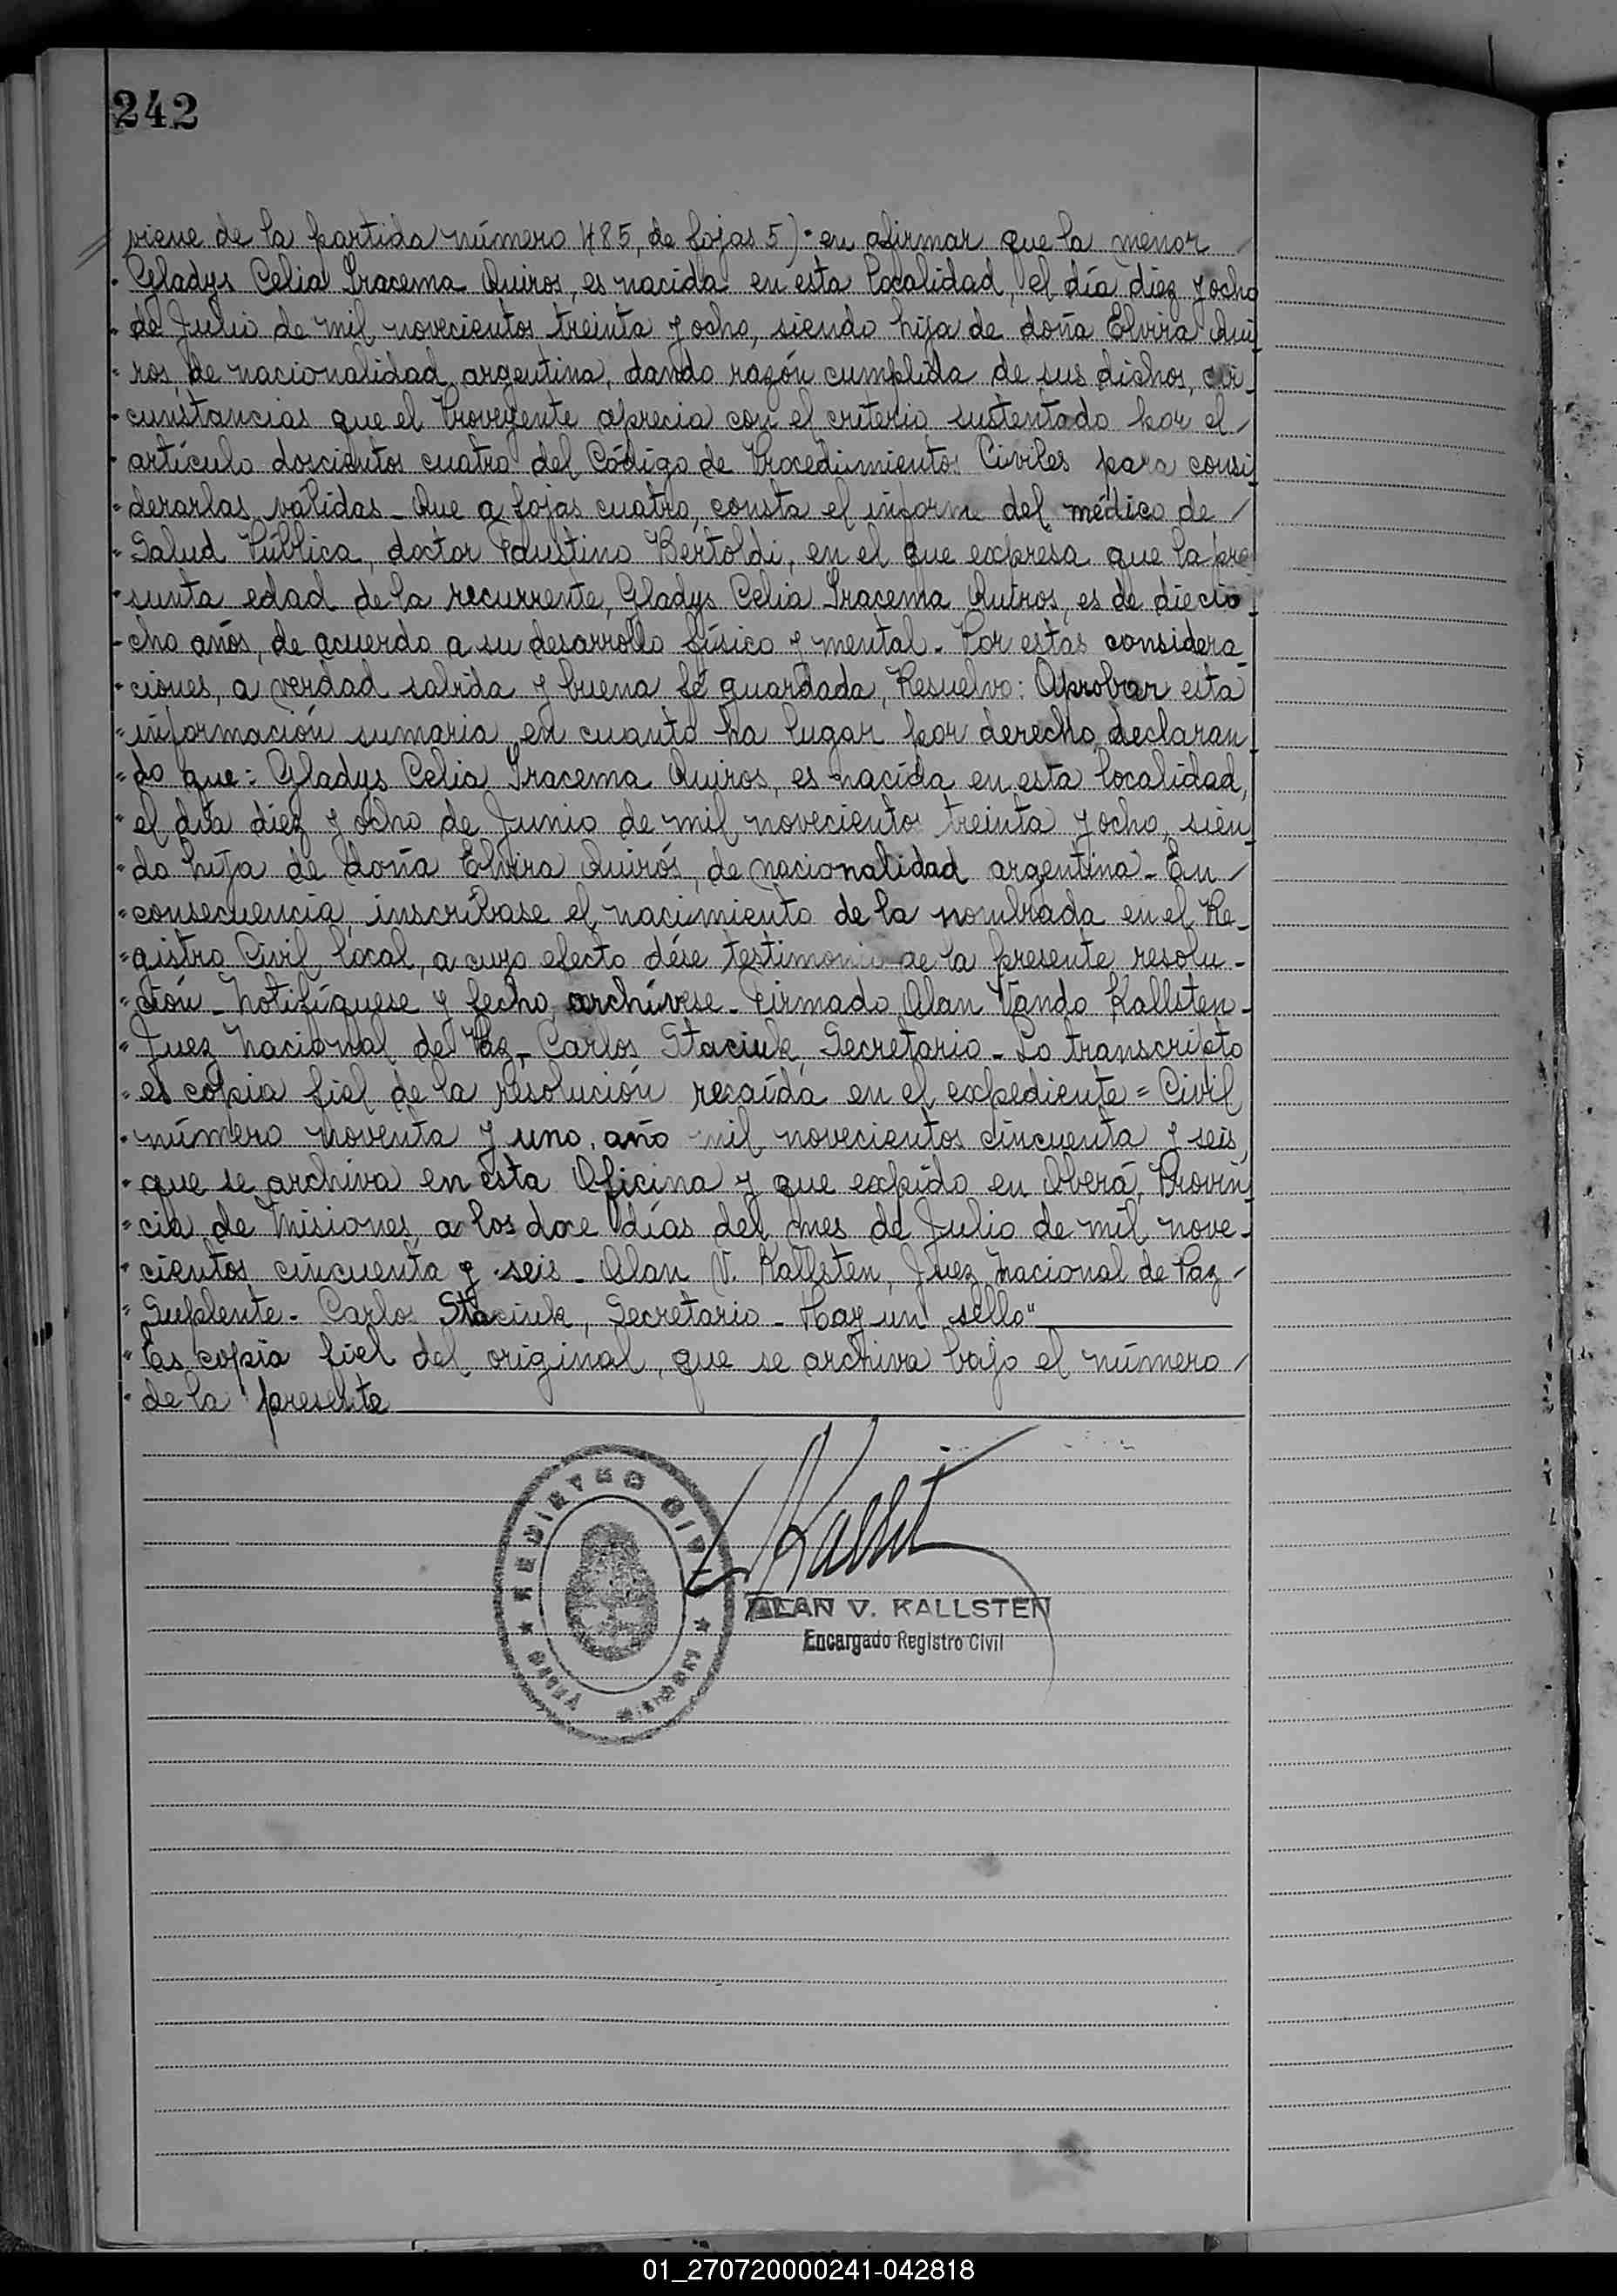 242
viene de la partida número 485, de fojas 5)- en afirmar que la menor
Gladys Celia Iracema Quiros, es nacida en esta localidad, el día diez y ocho
de Julio de mil novecientos treinta y ocho, siendo hija de doña Elvira Qui
ros, de nacionalidad argentina, dando razón cumplida de sus dichos, cir-
cunstancias que el Proveyente aprecia con el criterio sustentado por el
artículo doscientos cuatro del Código de Procedimientos Civiles para consi
derarlas válidas- Que a fojas cuatro, consta el informe del médico de
Salud Pública, doctor Faustino Bertoldi, en el que expresa que la pre
sunta edad de la recurrente, Gladys Celia Iracema Quiros, es de diecio
cho años, de acuerdo a su desarrollo físico y mental- Por estas considera
ciones, a verdad sabida y buena fé guardada, Resuelvo: Aprobar esta
información sumaria en cuanto ha lugar por derecho, declaran
do que: Gladys Celia Iracema Quiros, es nacida en esta localidad,
el día diez y ocho de Junio de mil novecientos treinta y ocho, sien
do hija de doña Elvira Quirós, de nacionalidad argentina- En
consecuencia, inscríbase el nacimiento de la nombrada en el Re-
gistro Civil local, a cuyo efecto dése testimonio de la presente resolu-
ción- Notifíquese y fecho archívese- Firmado Alan Vando Kallsten-
Juez Nacional de Paz- Carlos Staciuk, Secretario- Lo transcripto
es copia fiel de la resolución recaída en el expediente= Civil
número noventa y uno, año mil novecientos cincuenta y seis,
que se archiva en esta Oficina y que expido en Oberá, Provin
cia de Misiones, a los doce días del mes de Julio de mil nove-
cientos cincuenta y seis- Alan V. Kallsten, Juez Nacional de Paz
Suplente- Carlos Staciuk, Secretario- Hay un sello"
Es copia fiel del original, que se archiva bajo el número
de la presente
REGISTRO CIVIL
MISIONES
Kallst
ALAN V. KALLSTEN
Encargado Registro Civil
01_270720000241-042818